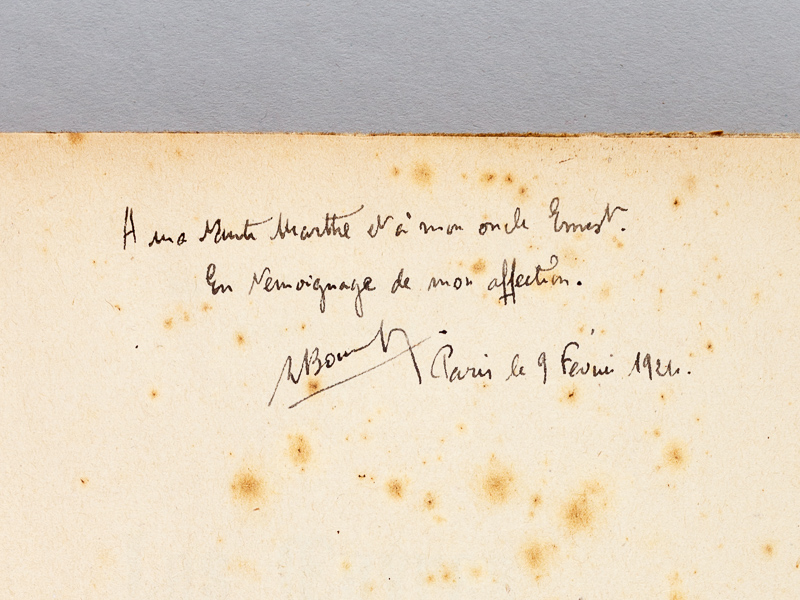 A ma tante Marthe et à mon oncle Ernest.
En témoignage de mon affection.
Paris le 9 Février 1924.